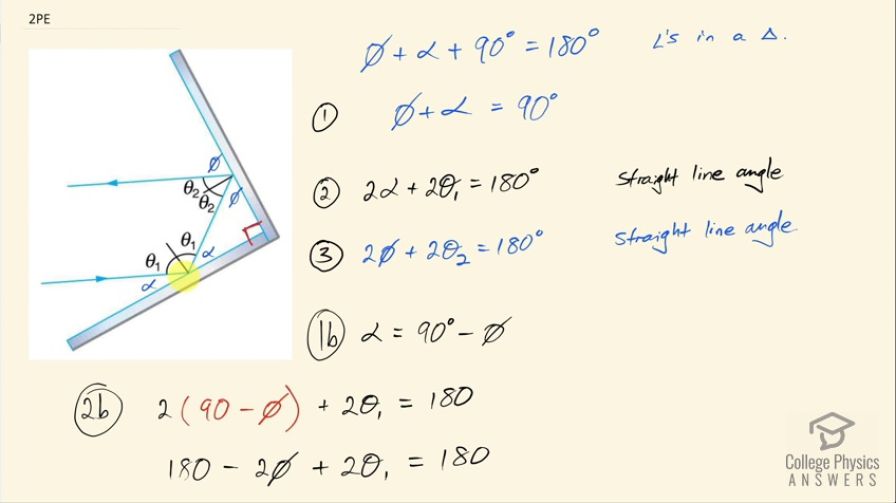 2PE
∅ + α + 90° = 180° ∠'s in a Δ.
① ∅ + α = 90°
② 2α + 2θ₁ = 180° straight line angle
③ 2∅ + 2θ₂ = 180° straight line angle
1b α = 90° − ∅
2b 2(90 − ∅) + 2θ₁ = 180
180 − 2∅ + 2θ₁ = 180
∅
θ₂
θ₂
∅
θ₁
θ₁
α
α
College Physics
ANSWERS